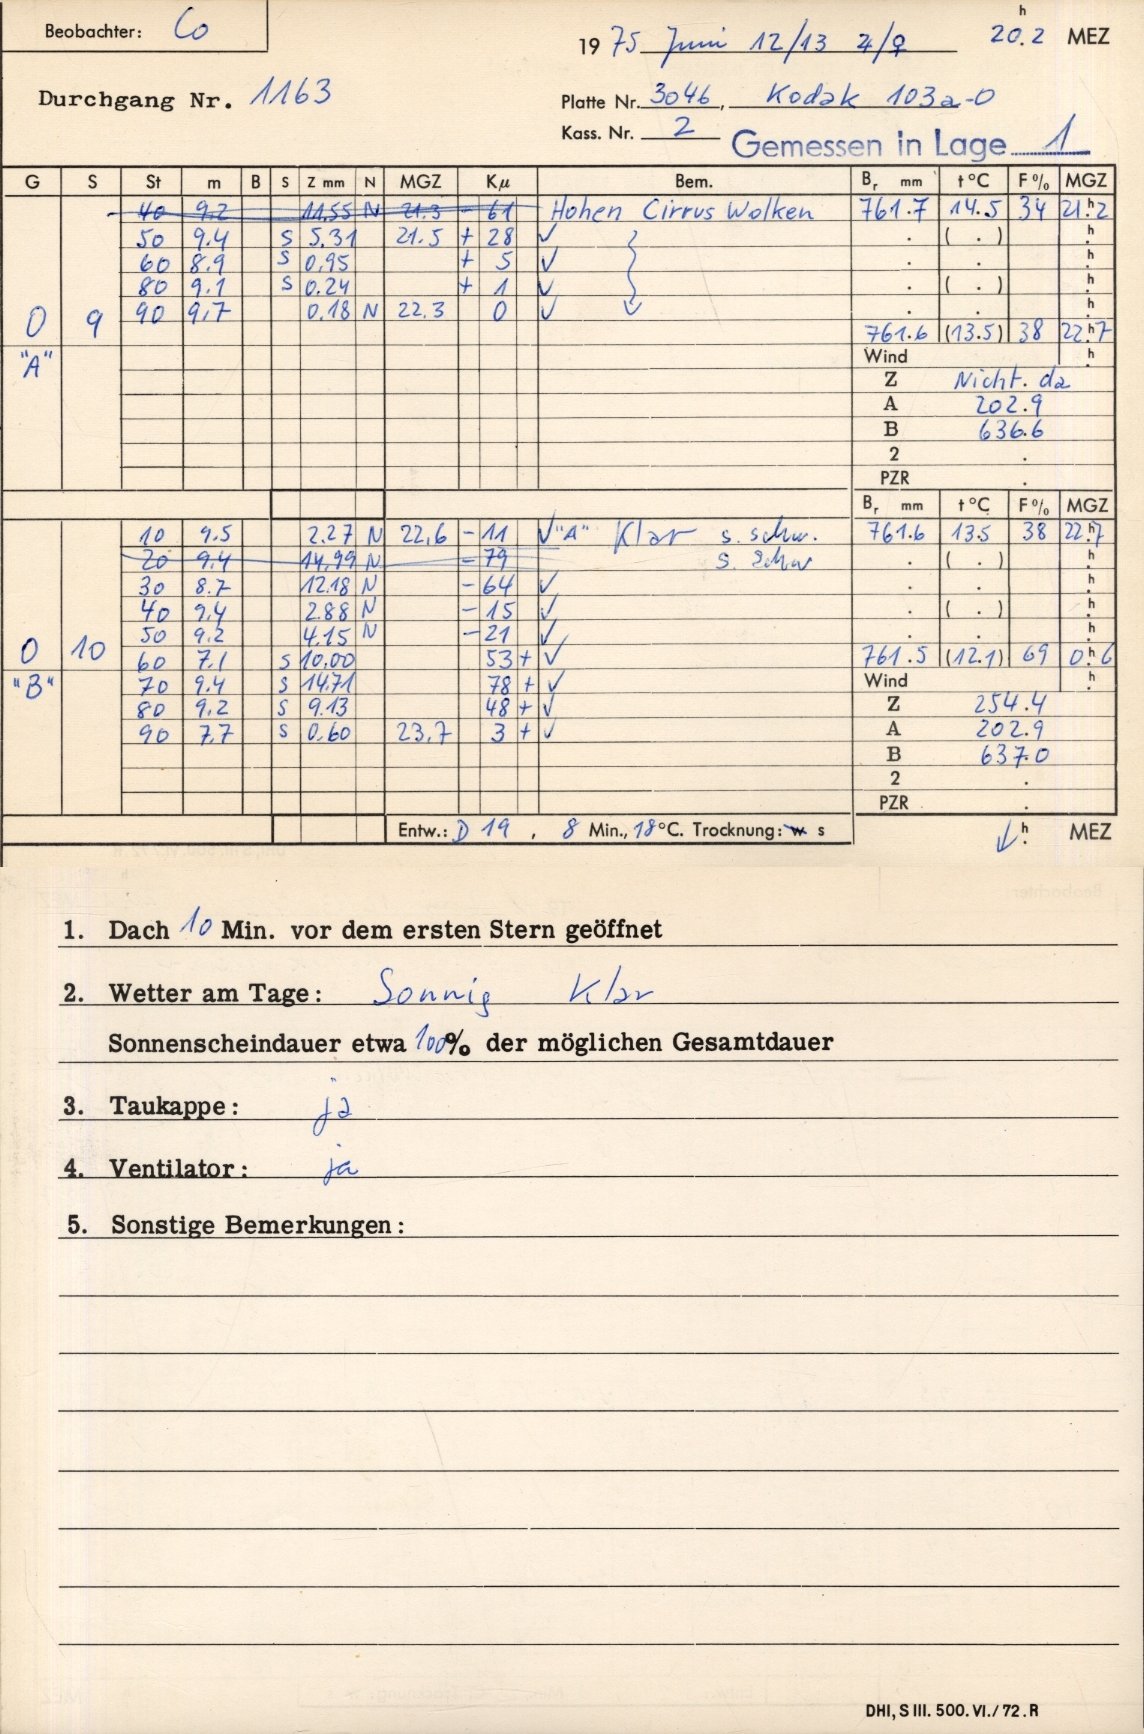 Beobachter: Co
1975 Juni 12/13 ♃/♀ 20.2 h MEZ
Durchgang Nr. 1163
Platte Nr. 3046, Kodak 103a-O
Kass. Nr. 2 Gemessen in Lage 1
G S St m B S Z mm N MGZ Kµ Bem. Br mm t°C F% MGZ
40 9.2 11,55 N 21.3 - 61 Hohen Cirrus Wolken 761.7 14.5 34 21h.2
50 9.4 S 5,31 21.5 + 28 ✓ . ( . ) h.
60 8.9 S 0,95 + 5 ✓ . . h.
80 9.1 S 0.24 + 1 ✓ . ( . ) h.
0 9 90 9,7 0.18 N 22.3 0 ✓ . . h.
761.6 (13.5) 38 22h.7
"A" Wind h
Z Nicht. da
A 202.9
B 636.6
2 .
PZR .
Br mm t°C F% MGZ
10 9.5 2.27 N 22,6 - 11 ✓ "A" Klar s. schw. 761.6 13.5 38 22h.7
20 9.4 14,99 N - 79 s. schw . ( . ) h.
30 8.7 12.18 N - 64 ✓ . . h.
40 9.4 2.88 N - 15 ✓ . ( . ) h.
50 9.2 4.15 N - 21 ✓ . . h.
0 10 60 7.1 S 10,00 53 + ✓ 761.5 (12.1) 69 0h.6
"B" 70 9.4 S 14.71 78 + ✓ Wind h.
80 9.2 S 9.13 48 + ✓ Z 254.4
90 7.7 S 0,60 23,7 3 + ✓ A 202.9
B 637.0
2 .
PZR .
Entw.: D 19 , 8 Min., 18°C. Trocknung: w s h. MEZ
1. Dach 10 Min. vor dem ersten Stern geöffnet
2. Wetter am Tage: Sonnig Klar
Sonnenscheindauer etwa 100% der möglichen Gesamtdauer
3. Taukappe: ja
4. Ventilator: ja
5. Sonstige Bemerkungen:
DHI, S III. 500. VI./72. R